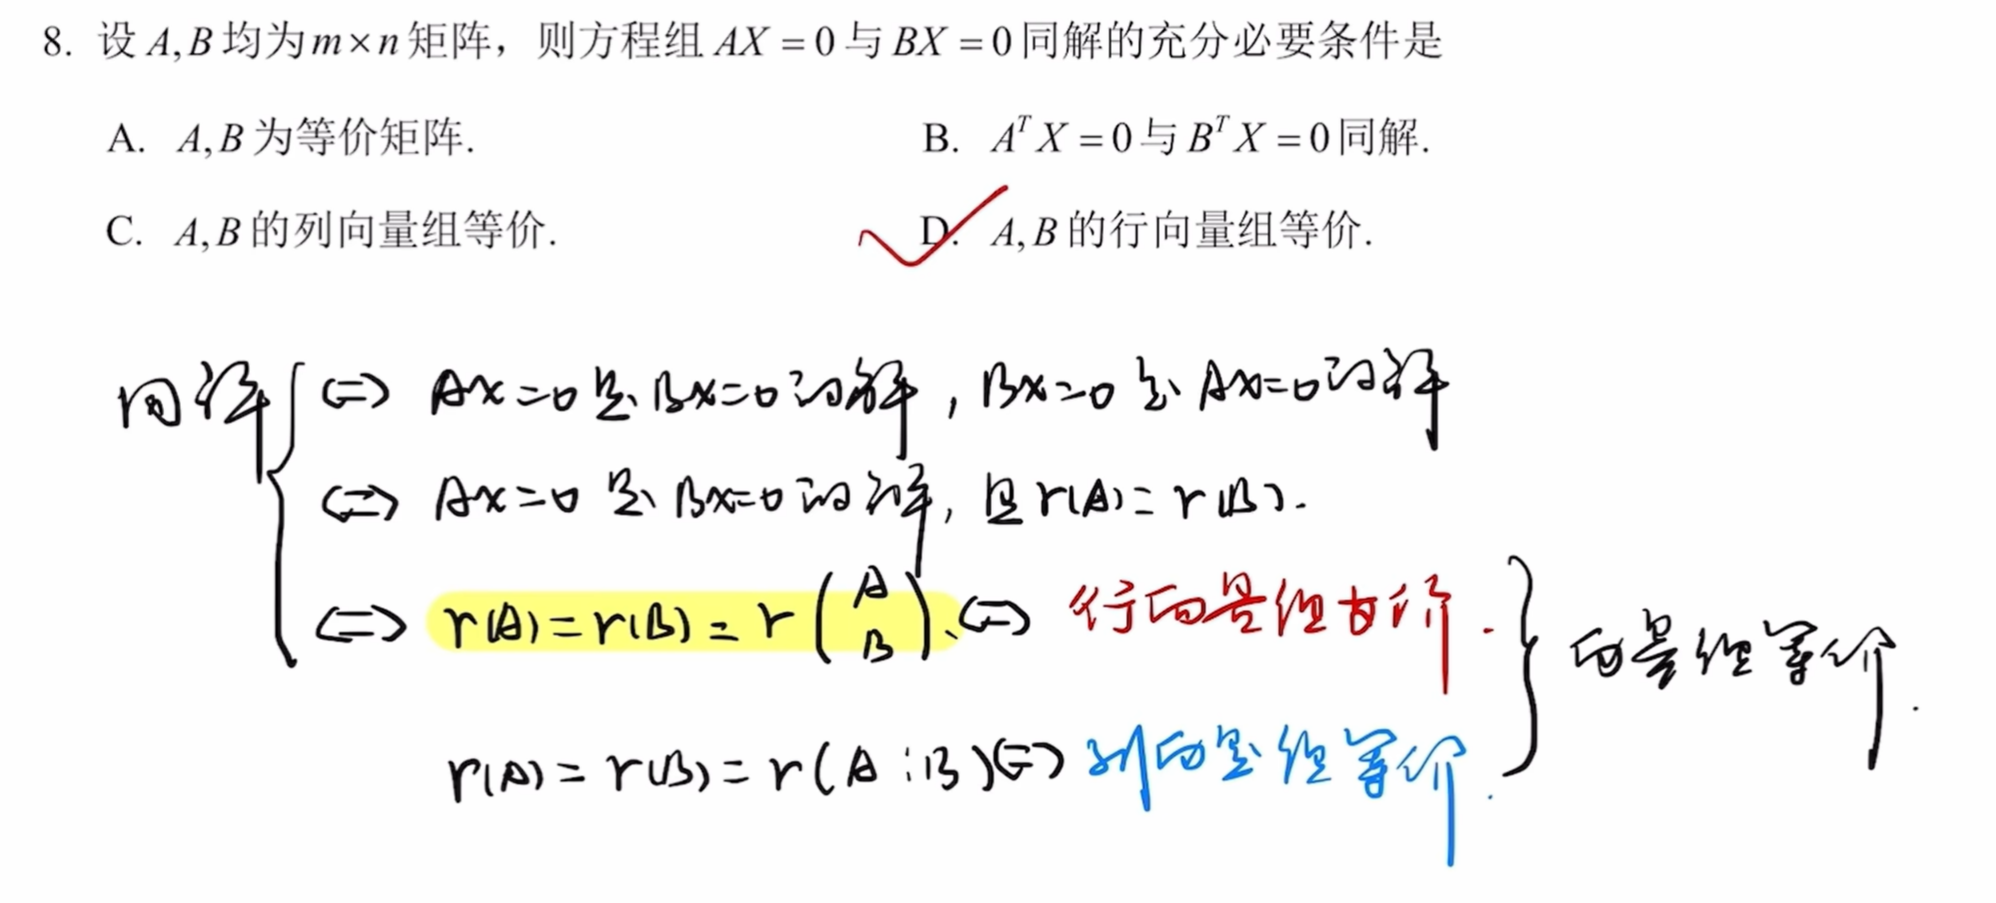 8. 设 A,B 均为 m×n 矩阵，则方程组 AX = 0 与 BX = 0 同解的充分必要条件是
A. A,B 为等价矩阵.
B. AᵀX = 0 与 BᵀX = 0 同解.
C. A,B 的列向量组等价.
D. A,B 的行向量组等价.
同解 ⇔ Ax=0 是 Bx=0 的解, Bx=0 是 Ax=0 的解
⇔ Ax=0 是 Bx=0 的解, 且 r(A)= r(B).
⇔ r(A)=r(B)= r(A B). ⇔ 行向量组等价.
向量组等价.
r(A)= r(B)= r(A⋮B) ⇔ 列向量组等价.